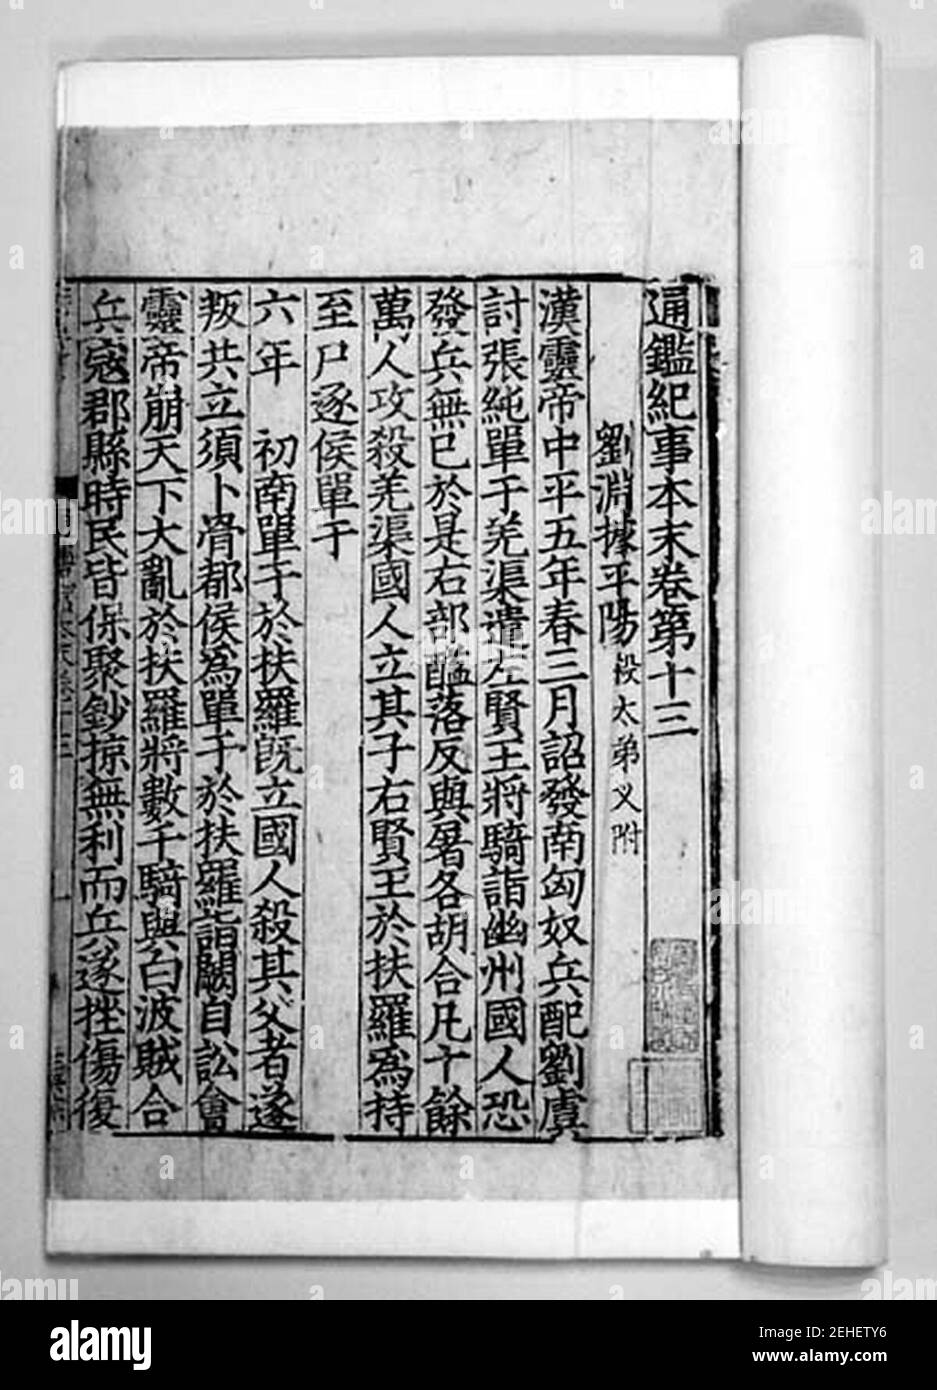 通鑑紀事本末卷第十三
劉淵據平陽 殺太弟乂附
漢靈帝中平五年春三月詔發南匈奴兵配劉虞
討張純單于羌渠遣左賢王將騎詣幽州國人恐
發兵無已於是右部䤈落反與屠各胡合凡十餘
萬人攻殺羌渠國人立其子右賢王於扶羅為持
至尸逐侯單于
六年 初南單于於扶羅既立國人殺其父者遂
叛共立須卜骨都侯為單于於扶羅詣闕自訟會
靈帝崩天下大亂於扶羅將數千騎與白波賊合
兵寇郡縣時民皆保聚鈔掠無利而兵遂挫傷復
alamy
Image ID: 2EHETY6
www.alamy.com